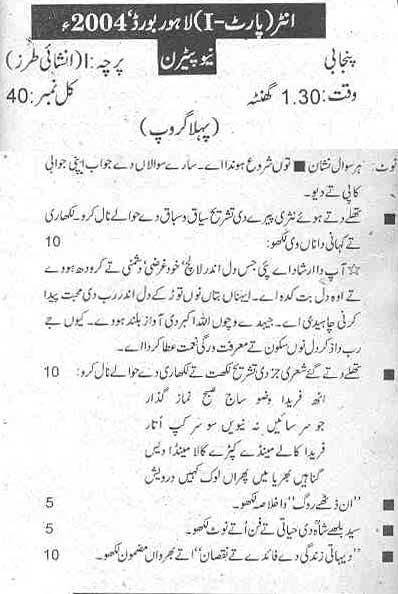 انٹر (پارٹ-I) لاہور بورڈ 2004ء
پنجابی نیو پیٹرن پرچہ: I (انشائی طرز)
وقت: 1.30 گھنٹہ کل نمبر: 40
(پہلا گروپ)
نوٹ: ہر سوال نشان ■ توں شروع ہوندا اے۔ سارے سوالاں دے جواب اپنی جوابی
کاپی تے دیو۔
■ تھلے دتے ہوئے نثری پیرے دی تشریح سیاق و سباق دے حوالے نال کرو۔ لکھاری
تے کہانی دا ناں وی لکھو: 10
☆ آپ دا ارشاد اے پئی جس دل اندر لالچ، خود غرضی، دشمنی تے کرودھ ہووے
تے اوہ دل بت کدہ اے۔ ایہناں بتاں نوں توڑ کے دل اندر رب دی محبت پیدا
کرنی چاہیدی اے۔ جیہدے وچوں اللہ اکبر دی آواز بلند ہووے۔ کیوں جے
رب دا ذکر دل نوں سکون تے معرفت ورگی نعمت عطا کردا اے۔
■ تھلے دتے گئے شعری جز دی تشریح لکھت تے لکھاری دے حوالے نال کرو: 10
اٹھ فریدا وضو ساج صبح نماز گذار
جو سر سائیں نہ نیویں سو سر کپ اُتار
فریدا کالے مینڈے کپڑے کالا مینڈا ویس
گناہیں بھریا میں پھراں لوک کہیں درویش
■ "ان ڈٹھے روگ" دا خلاصہ لکھو۔ 5
■ سید بلھے شاہ دی حیاتی تے فن اُتے نوٹ لکھو۔ 5
■ "دیہاتی زندگی دے فائدے تے نقصان" اتے بھرواں مضمون لکھو۔ 10